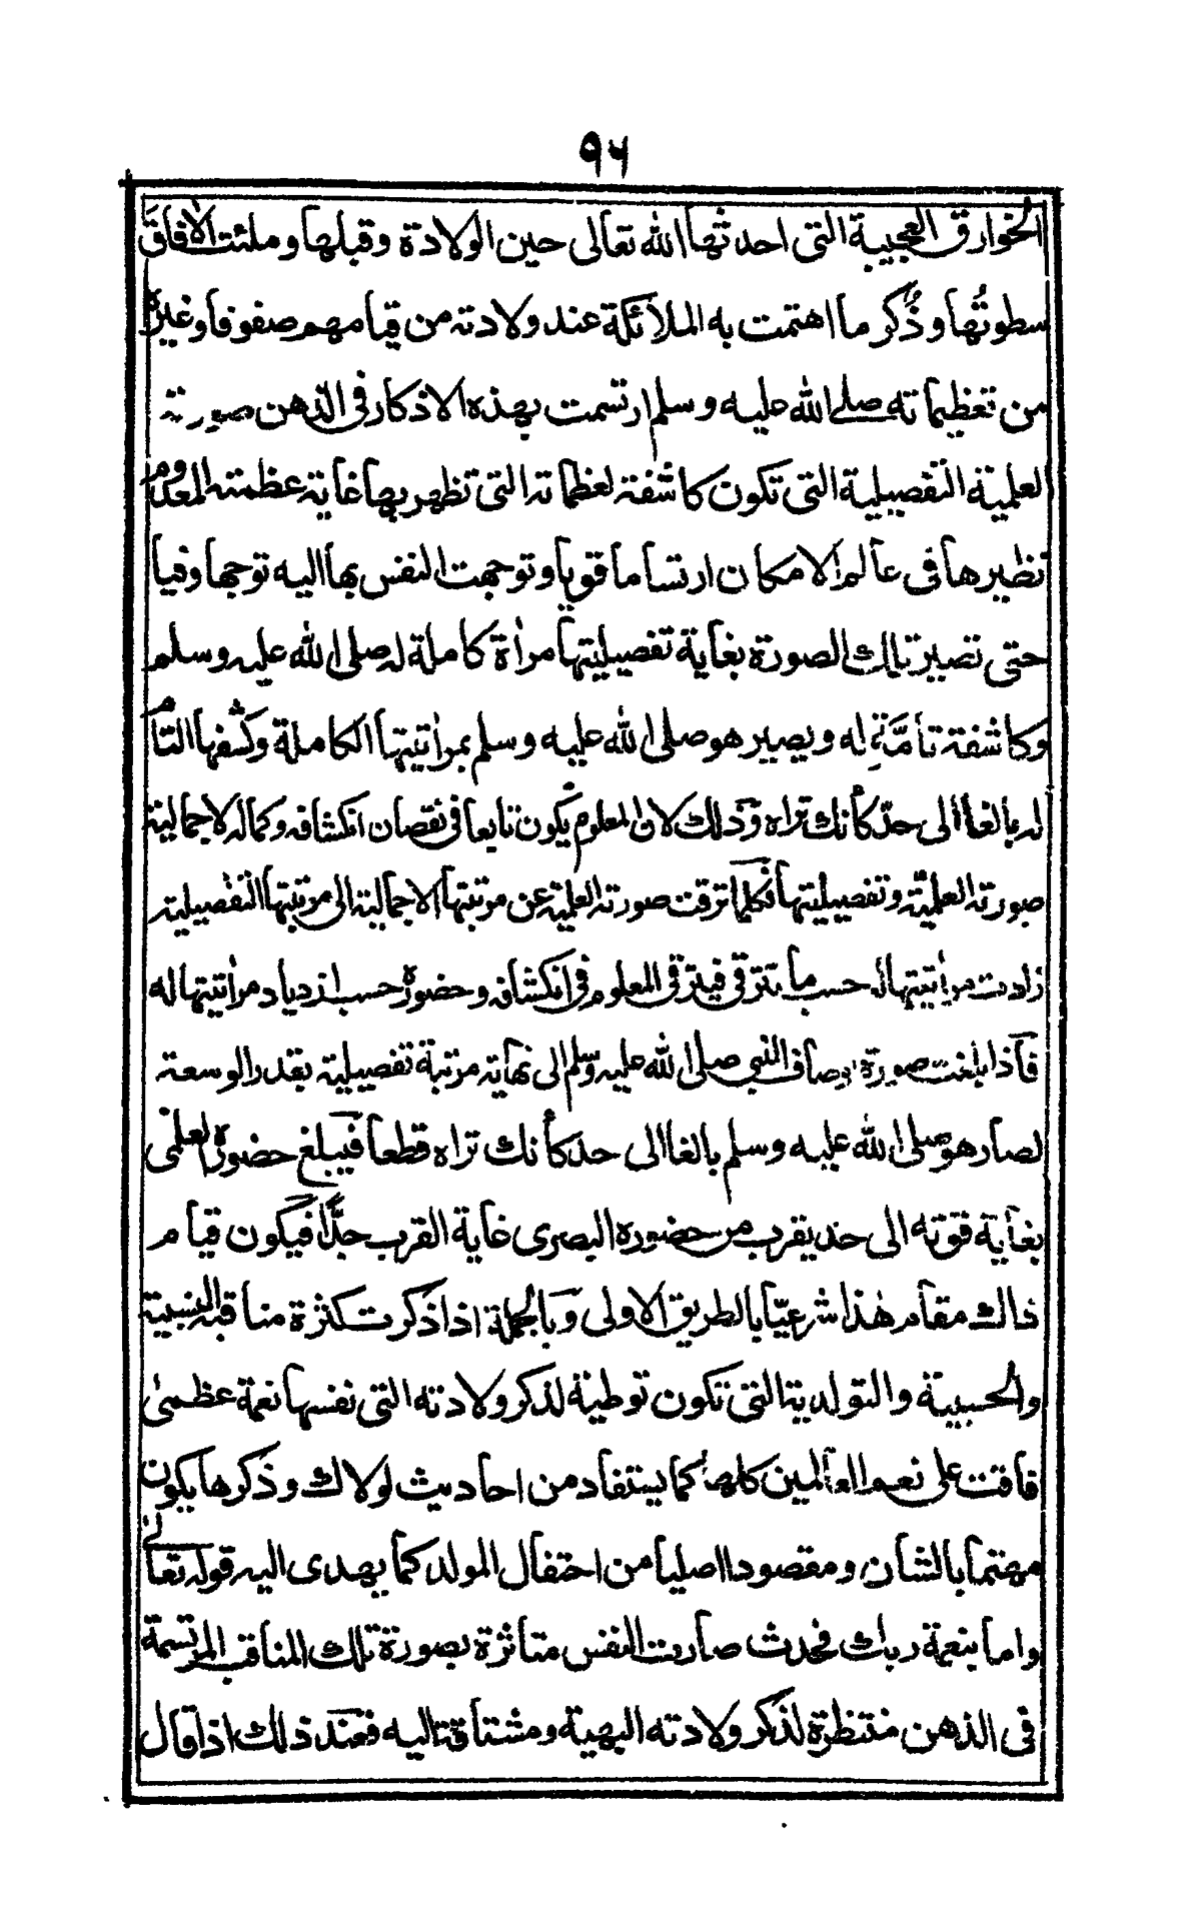 ٩٦
الخوارق العجيبة التى احدثها الله تعالى حين الولادة وقبلها وملئت الافاق
سطوتُها وذُكر ما اهتمت به الملائكة عند ولادته من قيامهم صفوفا وغيره
من تعظيماته صلى الله عليه وسلم ارتسمت بهذه الاذكار فى الذهن صورته
العلمية التفصيلية التى تكون كاشفة لعظماته التى تظهر بها غاية عظمته المعدوم
نظيرها فى عالم الامكان ارتساما قويا وتوجهت النفس بها اليه توجها وفيا
حتى تصير تلك الصورة بغاية تفصيليتها مراٰة كاملة له صلى الله عليه وسلم
وكاشفة تامَّة له ويصير هو صلى الله عليه وسلم بمراٰتيتها الكاملة وكشفها التام
له بالغا الى حدّ كأنك تراه وذلك لان المعلوم يكون تابعا فى نقصان انكشافه وكماله لاجمالية
صورته العلميّة وتفصيليتها فكلما ترقت صورته العلمية عن مرتبتها الاجمالية الى مرتبتها التفصيلية
زادت مراٰتيتها له حسب ما تترقى فيترقى المعلوم فى انكشافه وحضوره حسب ازدياد مراٰتيتها له
فاذا بلغت صورة اوصاف النبى صلى الله عليه وسلم الى نهاية مرتبة تفصيلية بقدر الوسعة
لصار هو صلى الله عليه وسلم بالغا الى حد كأنك تراه قطعا فيبلغ حضوره العلمى
بغاية قوته الى حد يقرب من حضوره البصرى غاية القرب جدًّا فيكون قيام
ذالك مقام هٰذا شرعيّا بالطريق الاولى وبالجملة اذا ذكرت كثرة مناقبه النسبية
والحسبية والتولدية التى تكون توطية لذكر ولادته التى نفسها نعمة عظمىٰ
فاقت على نعم العالمين كلها كما يستفاد من احاديث لولاك وذكرها يكون
مهتما بالشان ومقصودا اصليا من احتفال المولد كما يهدى اليه قوله تعالىٰ
واما بنعمة ربك فحدث صارت النفس متاثرة بصورة تلك المناقب المرتسمة
فى الذهن منتظرة لذكر ولادته البهية ومشتاقة اليه فعند ذلك اذا قال